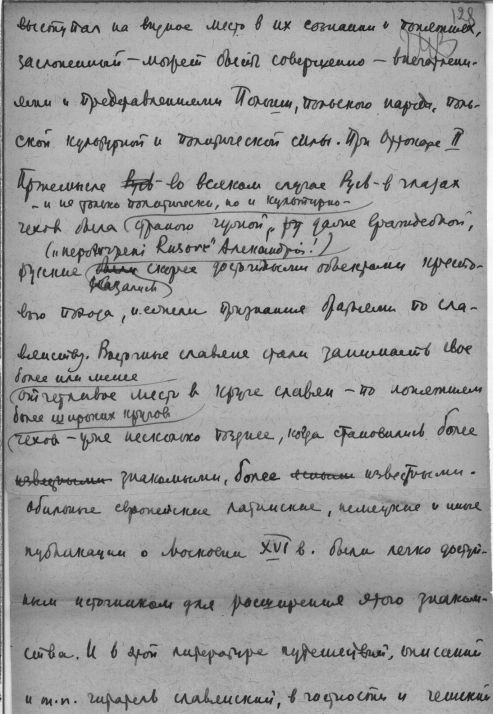 128
выступал на видное место в их сознании и понятиях,
заслоненный – может быть совершенно – впечатлени-
ями и представлениями Польши, польского народа, поль-
ской культурной и политической силы. При Оттокаре II
Пржемысле Русь во всяком случае Русь – в глазах
– и не только политически, но и культурно –
чехов была страною чуждой, даже враждебной,
Rusové" Александрой!)
русские были скорее достойными объектами кресто-
казались
вого похода, нежели признания братьями по сла-
вянству. Восточные славяне стали занимать свое
более или менее
отчетливое место в круге славян – по понятиям
более широких кругов
чехов – уже несколько позднее, когда становились более
известными знакомыми, более известными.
Обильные европейские латинские, немецкие и иные
публикации о Московии XVI в. были легко доступ-
ным источником для расширения этого знаком-
ства. И в этой литературе путешествий, описаний
и т.п. читатель славянский, в частности и чешский